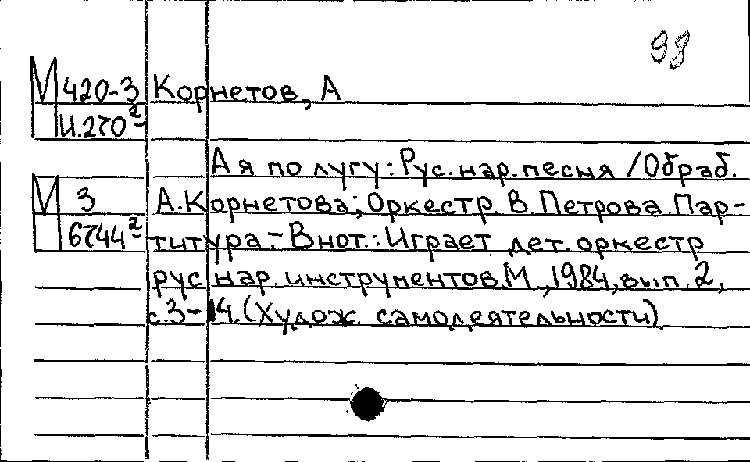 98
М 420-3 Корнетов, А
И.270²
А я по лугу: Рус. нар. песня / Обраб.
М 3 А. Корнетова; Оркестр. В. Петрова. Пар-
6744² титура. - В нот.: Играет дет. оркестр
рус. нар. инструментов. М., 1984, вып. 2,
с. 3-14. (Худож. самодеятельности)